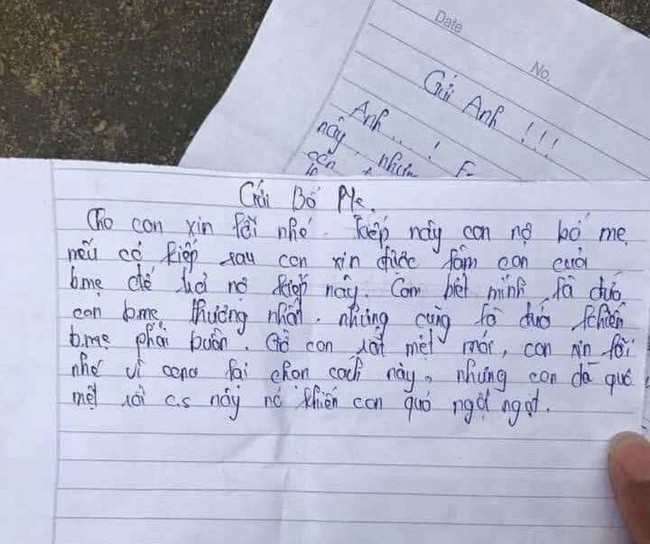 Date
No.
Gửi Anh !!!
Anh...!
này, nhưng
Gửi Bố Mẹ.
Cho con xin lỗi nhé. Kiếp này con nợ bố mẹ
nếu có kiếp sau con xin được làm con của
b.mẹ để trả nợ kiếp này. Con biết mình là đứa
con b.mẹ thương nhất. nhưng cũng là đứa khiến
b.mẹ phải buồn. Giờ con rất mệt mỏi, con xin lỗi
nhé vì con lại chọn cách này, nhưng con đã quá
mệt rồi c.s này nó khiến con quá ngột ngạt.